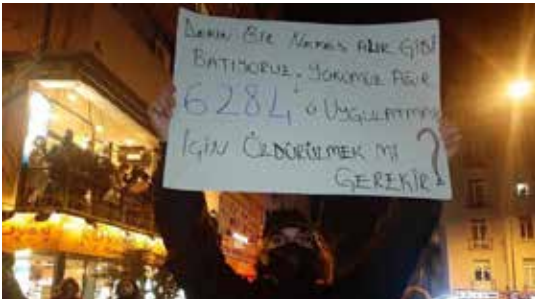 DERİN BİR NEFES ALIR GİBİ
BATIYORUZ, YÜKÜMÜZ AĞIR
6284, Ü UYGULATMAK
İÇİN ÖLDÜRÜLMEK Mİ
GEREKİR?